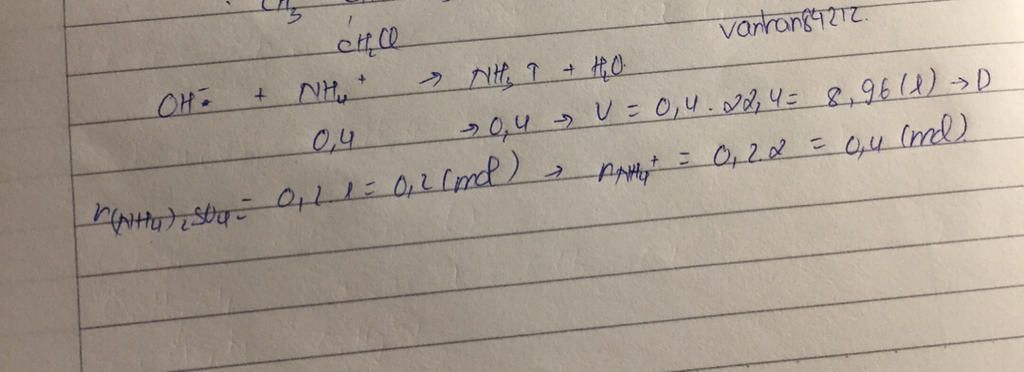 CH₃
CH₂Cl
vantran84212.
OH⁻ + NH₄⁺ → NH₃ ↑ + H₂O
0,4 → 0,4 → V = 0,4 . 22,4 = 8,96 (l) → D
n(NH₄)₂SO₄ = 0,2 . 1 = 0,2 (mol) → nNH₄⁺ = 0,2.2 = 0,4 (mol).